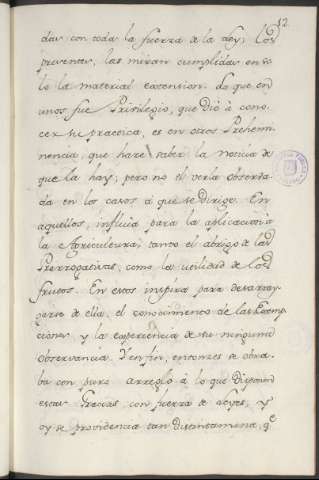 12
das con toda la fuerza de la Ley; Los
presentes, las miran cumplidas en so
lo la material extension. Lo que en
unos fue Privilegio, que dió à cono-
cer su practica, es en otros Prehemi-
nencia, que hace saber la noticia de
que la hay; pero no el verla observa-
da en los casos à que se dirige. En
aquellos, influìa para la aplicacion à
la Agricultura, tanto el abrigo de las
Prerrogativas, como la utilidad de los
frutos. En estos inspira para desarray-
garse de ella, el conocimiento de las Exemp
ciones, y la experiencia de su ninguna
observancia. Y en fin, entonces se obra-
ba con puro arreglo à lo que disponen
estas Gracias con fuerza de Leyes, y
oy se providencia tan distintamente, qᵉ